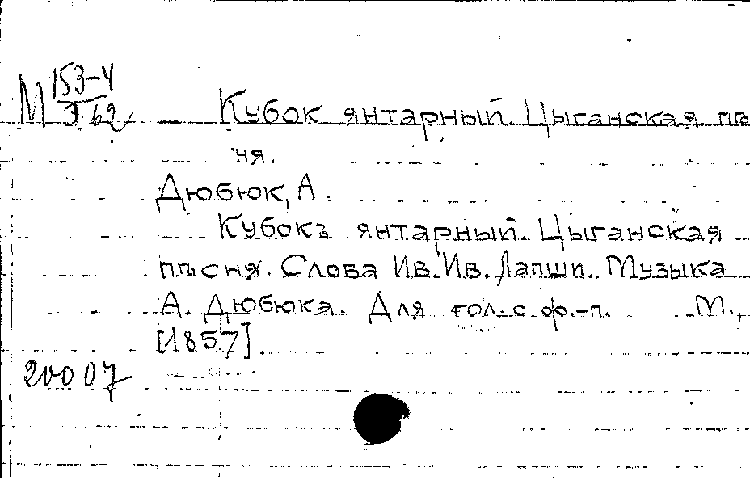 М 153-4
Кубок янтарный. Цыганская пѣ
ня.
Дюбюк, А.
Кубокъ янтарный. Цыганская
пѣсня. Слова Ив. Ив. Лапши. Музыка
А. Дюбюка. Для гол. с ф.-п. М.,
[1857]
20007